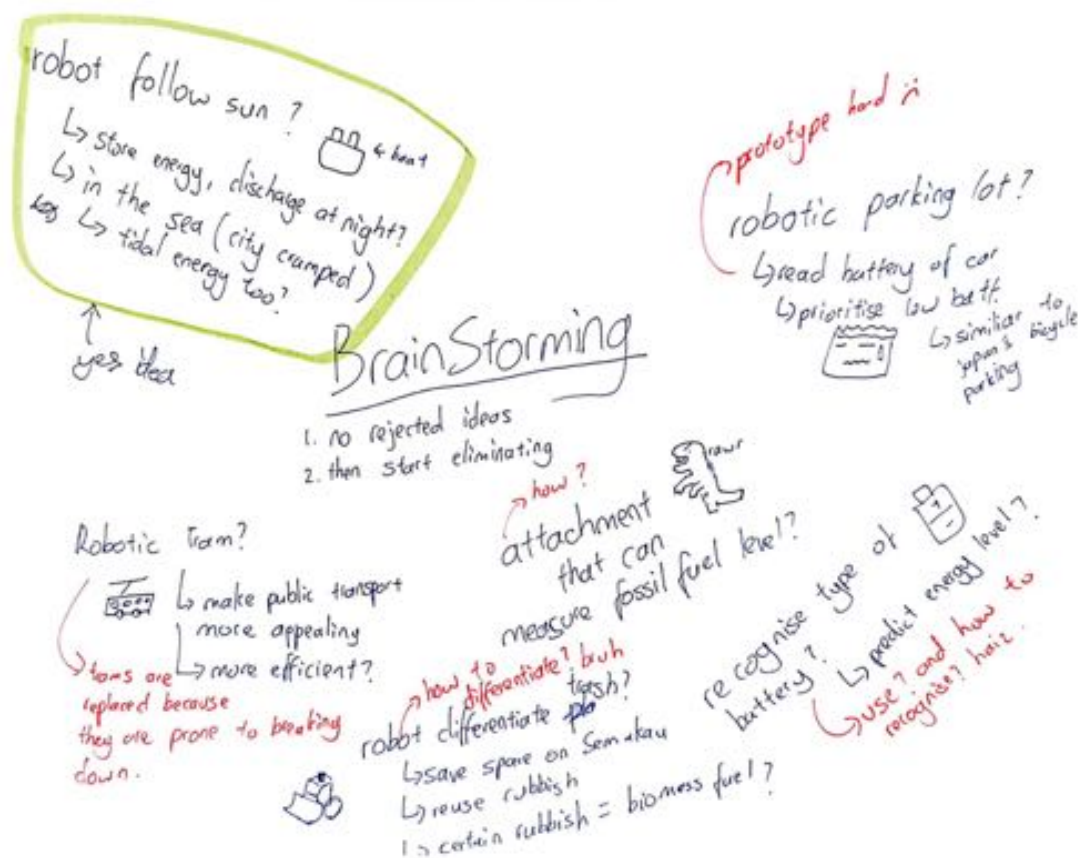 robot follow sun?
↳ store energy, discharge at night?
↳ in the sea (city cramped)
↳ tidal energy too?
← boat
yes idea
prototype hard :(
robotic parking lot?
↳ read battery of car
↳ prioritise low batt
↳ similiar to
japan's bicycle
parking
BrainStorming
1. no rejected ideas
2. then start eliminating
Robotic Tram?
↳ make public transport
more appealing
↳ more efficient?
trams are
replaced because
they are prone to breaking
down.
how?
attachment
that can
measure fossil fuel level?
rawr
how to
differentiate? bruh
robot differentiate trash?
↳ save space on Semakau
↳ reuse rubbish
↳ certain rubbish = biomess fuel?
recognise type of
battery?
↳ predict energy level?
use? and how to
recognise? haiz.